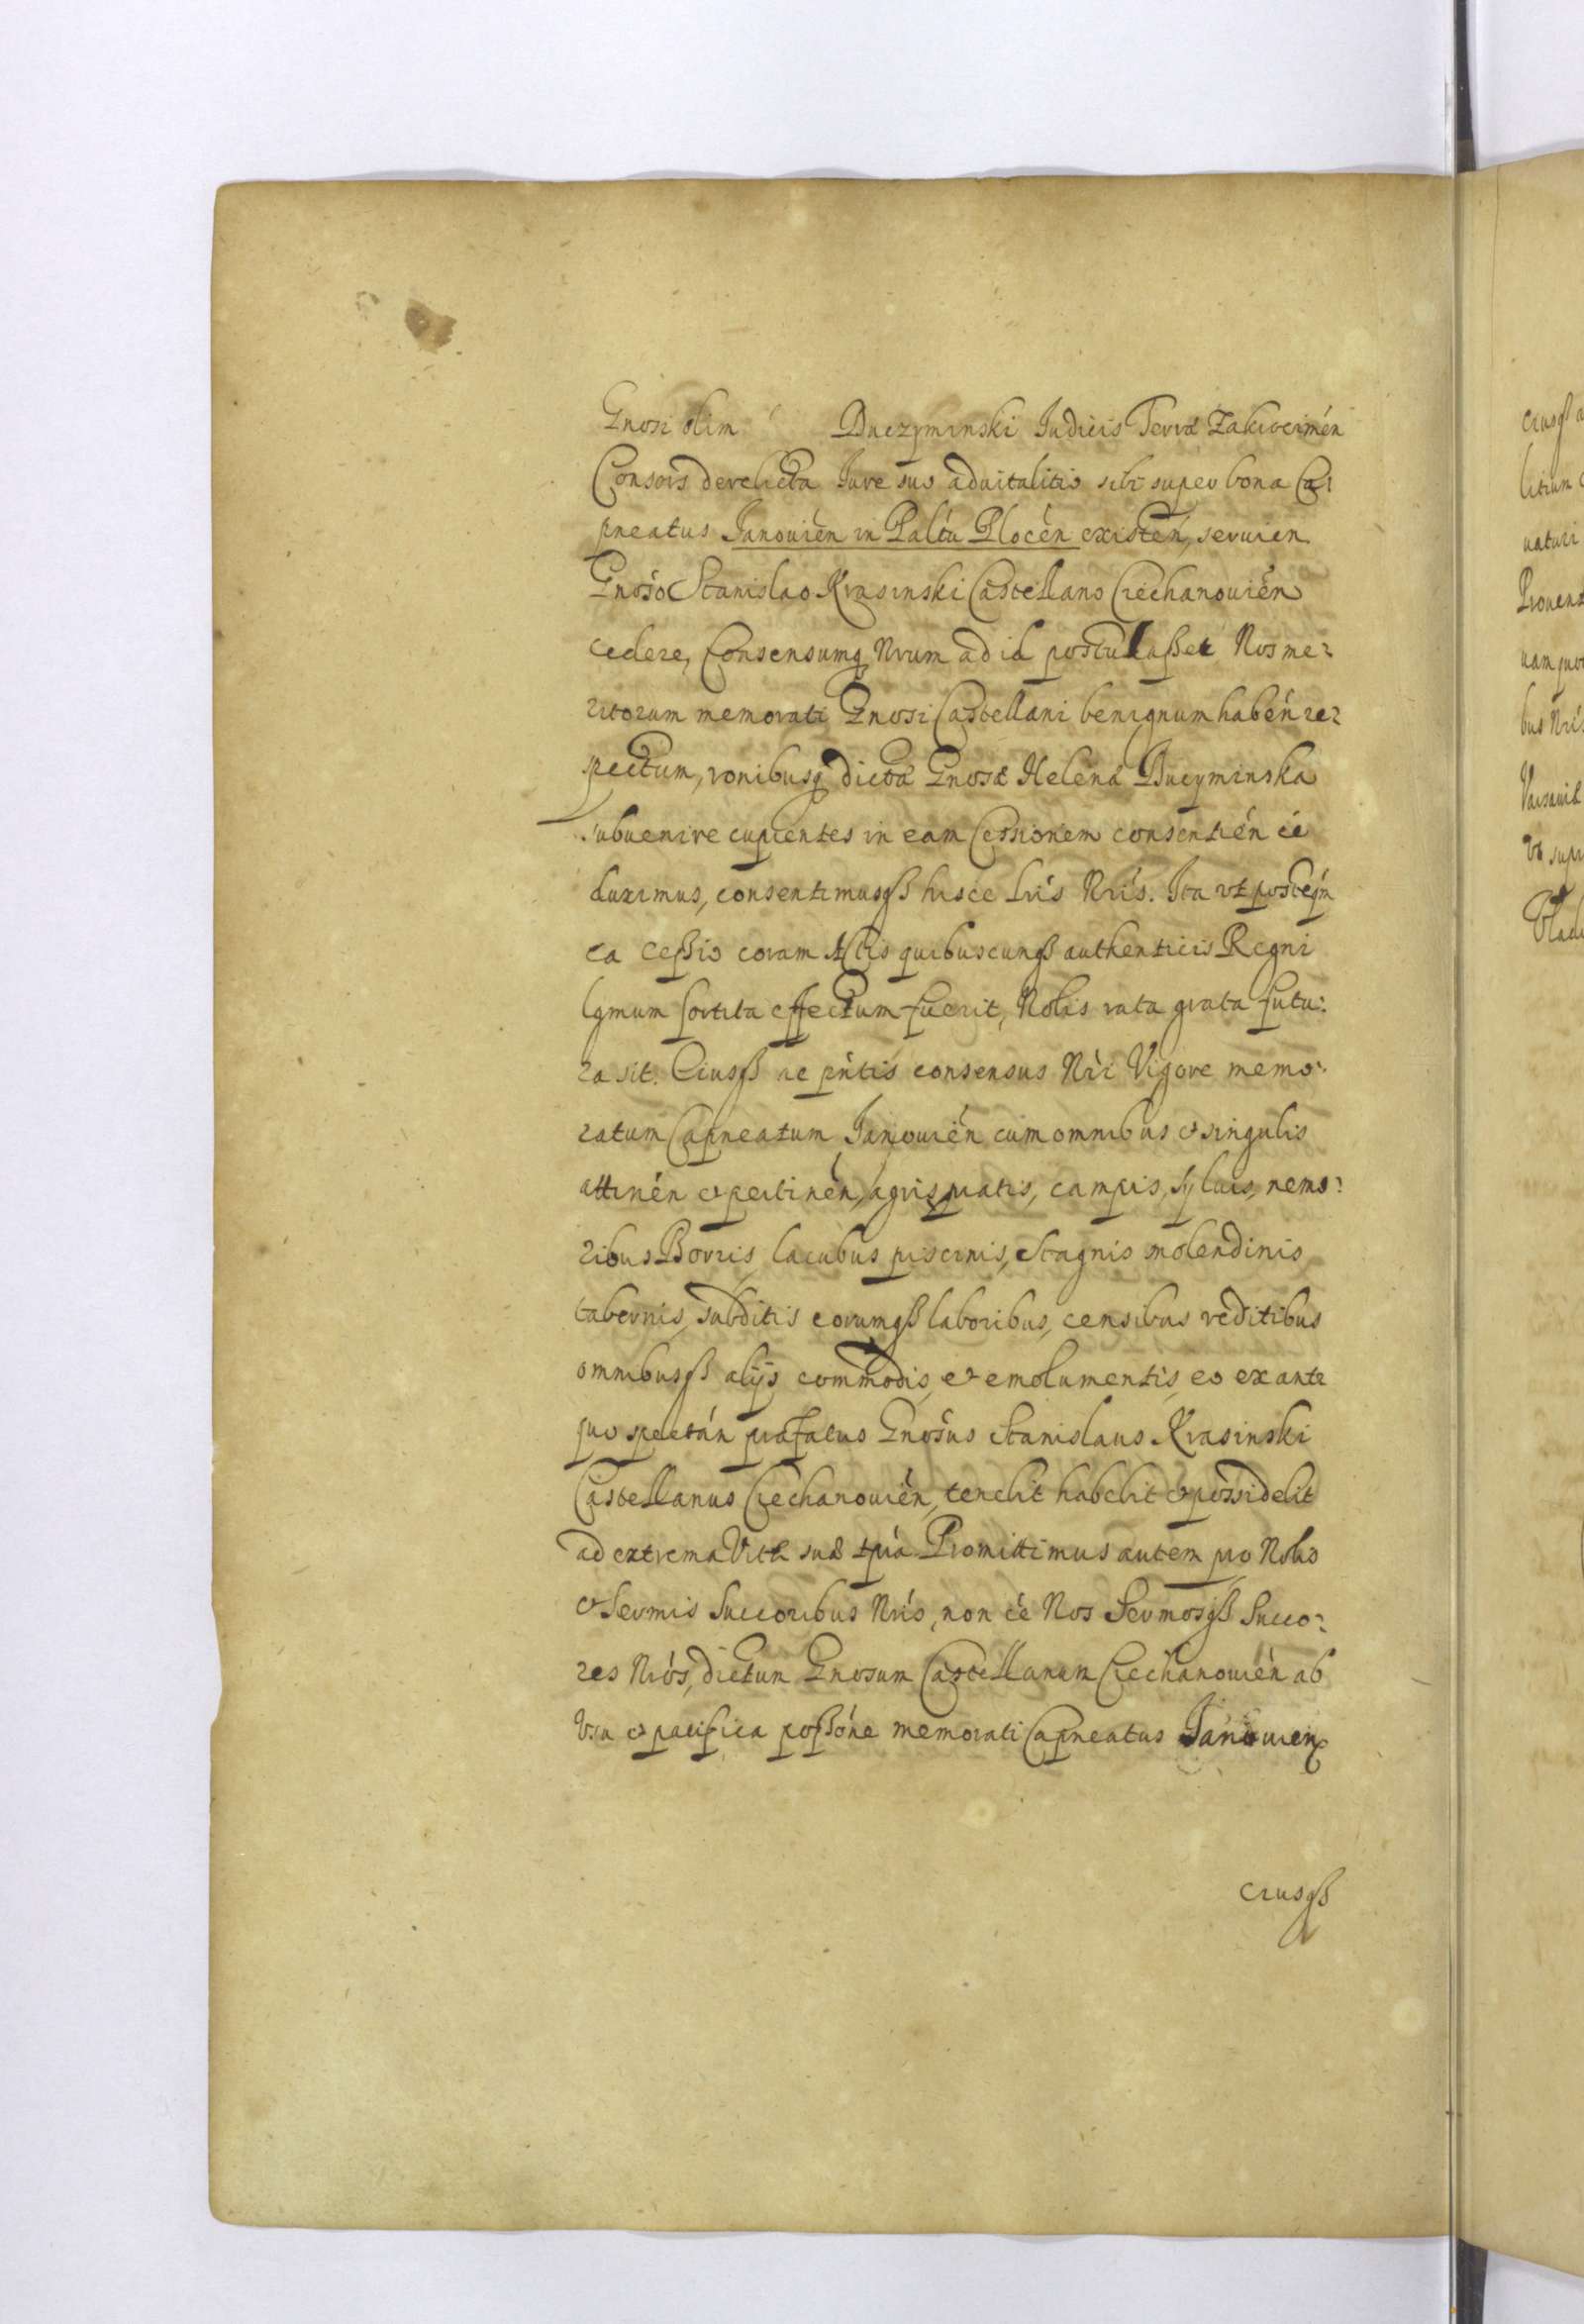 Gnosi olim Duczyminski Iudicis Terræ Zakrocimén
Consors derelicta Iure suo aduitalitio sibi super bona Ca:
pneatus Ianouién in Paltu Plocén existen, seruien
Gnoso Stanislao Krasinski Castellano Ciechanouién
cedere, Consensumq Nrum ad id postulasset Nos me:
ritorum memorati Gnosi Castellani benignum habén re:
spectum, ronibusq dictæ Gnosæ Helenæ Ducyminska
subuenire cupientes in eam Cessionem consentién ée
duximus, consentimusq hisce Lris Nris. Ita vt posteqm
ea Cessio coram Actis quibuscunq authenticis Regni
lgmum sortita effectum fuerit, Nobis rata grata futu:
ra sit. Eiusq ac pntis consensus Nri Vigore memo:
ratum Capneatum Ianouién cum omnibus et singulis
attinén et pertinén, agris pratis, campis, syluis, nemo:
ribus Borris, lacubus piscinis, Stagnis molendinis,
tabernis, subditis eorumq laboribus, censibus reditibus
omnibusq alijs commodis, et emolumentis, eo ex ante
quo spectán præfatus Gnosus Stanislaus Krasinski
Castellanus Ciechanouién, tenebit habebit et possidebit
ad extrema Vitæ suæ tpra Promittimus autem pro Nobis
et Sermis Succoribus Nris, non ée Nos Sermosq Succo:
res Nros, dictum Gnosum Castellanum Ciechanouién ab
Vsu et pacifica possóne memorati Capneatus Ianouien
eiusq
eiusq
litium
naturi
Prouent
bus Nris
vt supr